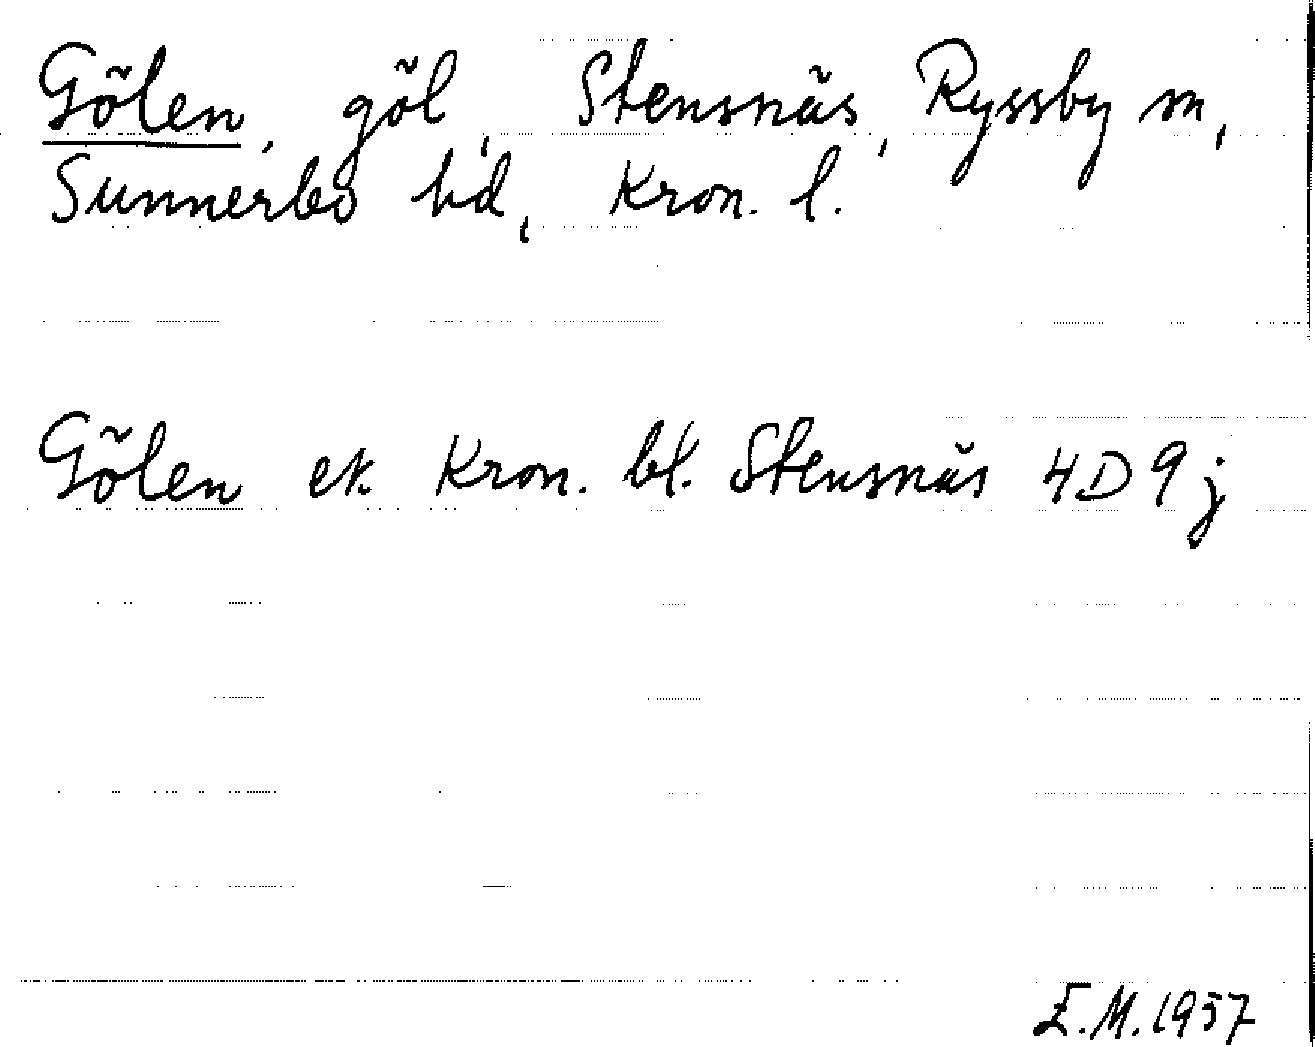 Gölen, göl, Stensnäs, Ryssby sn,
Sunnerbo hd, Kron. l.
Gölen ek. Kron. bl. Stensnäs 4D9j
E.M. 1957